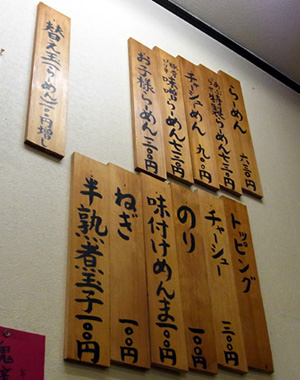 らーめん 六三〇円
特製らーめん七三〇円
チャーシューめん 九〇〇円
味噌らーめん七三〇円
お子様らーめん 三〇〇円
替え玉(らーめん)一〇〇円増し
トッピング
チャーシュー 三〇〇円
のり 一〇〇円
味付けめんま一〇〇円
ねぎ 一〇〇円
半熟煮玉子一〇〇円